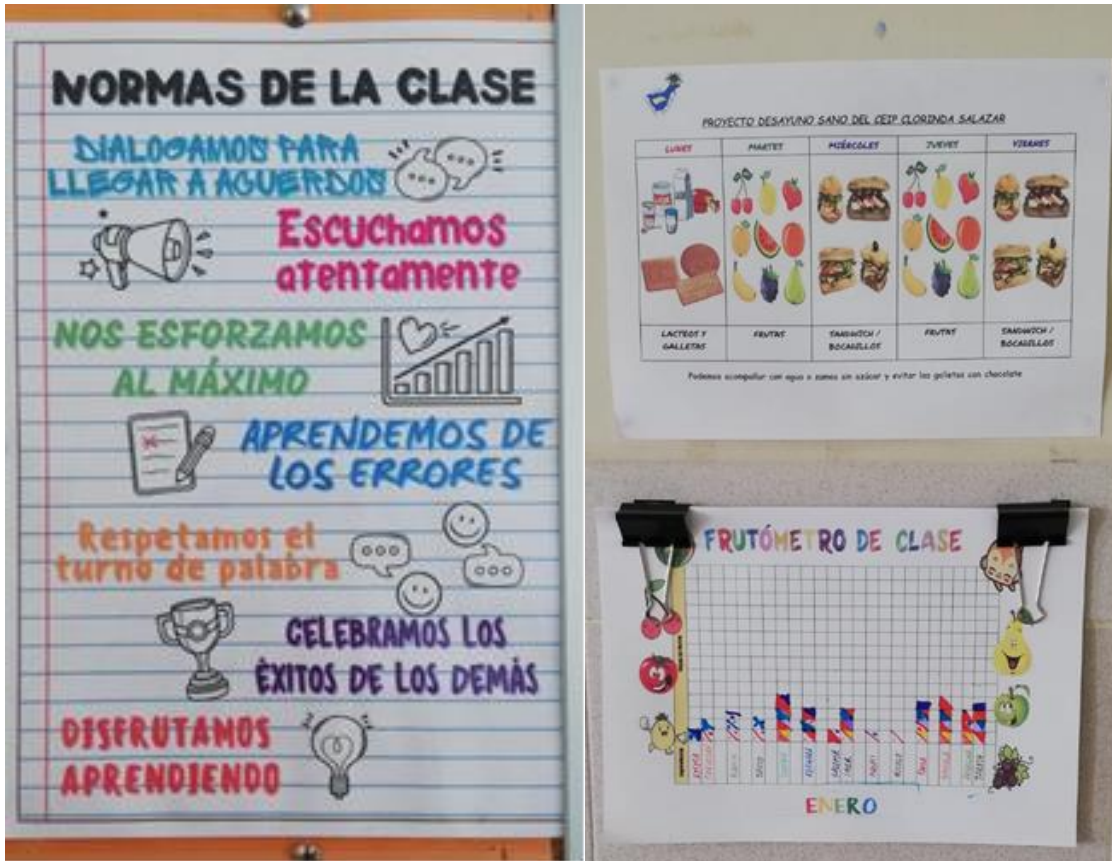 NORMAS DE LA CLASE
DIALOGAMOS PARA
LLEGAR A ACUERDOS
Escuchamos
atentamente
NOS ESFORZAMOS
AL MÁXIMO
APRENDEMOS DE
LOS ERRORES
Respetamos el
turno de palabra
CELEBRAMOS LOS
ÉXITOS DE LOS DEMÁS
DISFRUTAMOS
APRENDIENDO
PROYECTO DESAYUNO SANO DEL CEIP CLORINDA SALAZAR
LUNES MARTES MIÉRCOLES JUEVES VIERNES
LACTEOS Y GALLETAS
FRUTAS
SANDWICH / BOCADILLOS
FRUTAS
SANDWICH / BOCADILLOS
Podemos acompañar con agua o zumos sin azúcar y evitar las galletas con chocolate
FRUTÓMETRO DE CLASE
ENERO